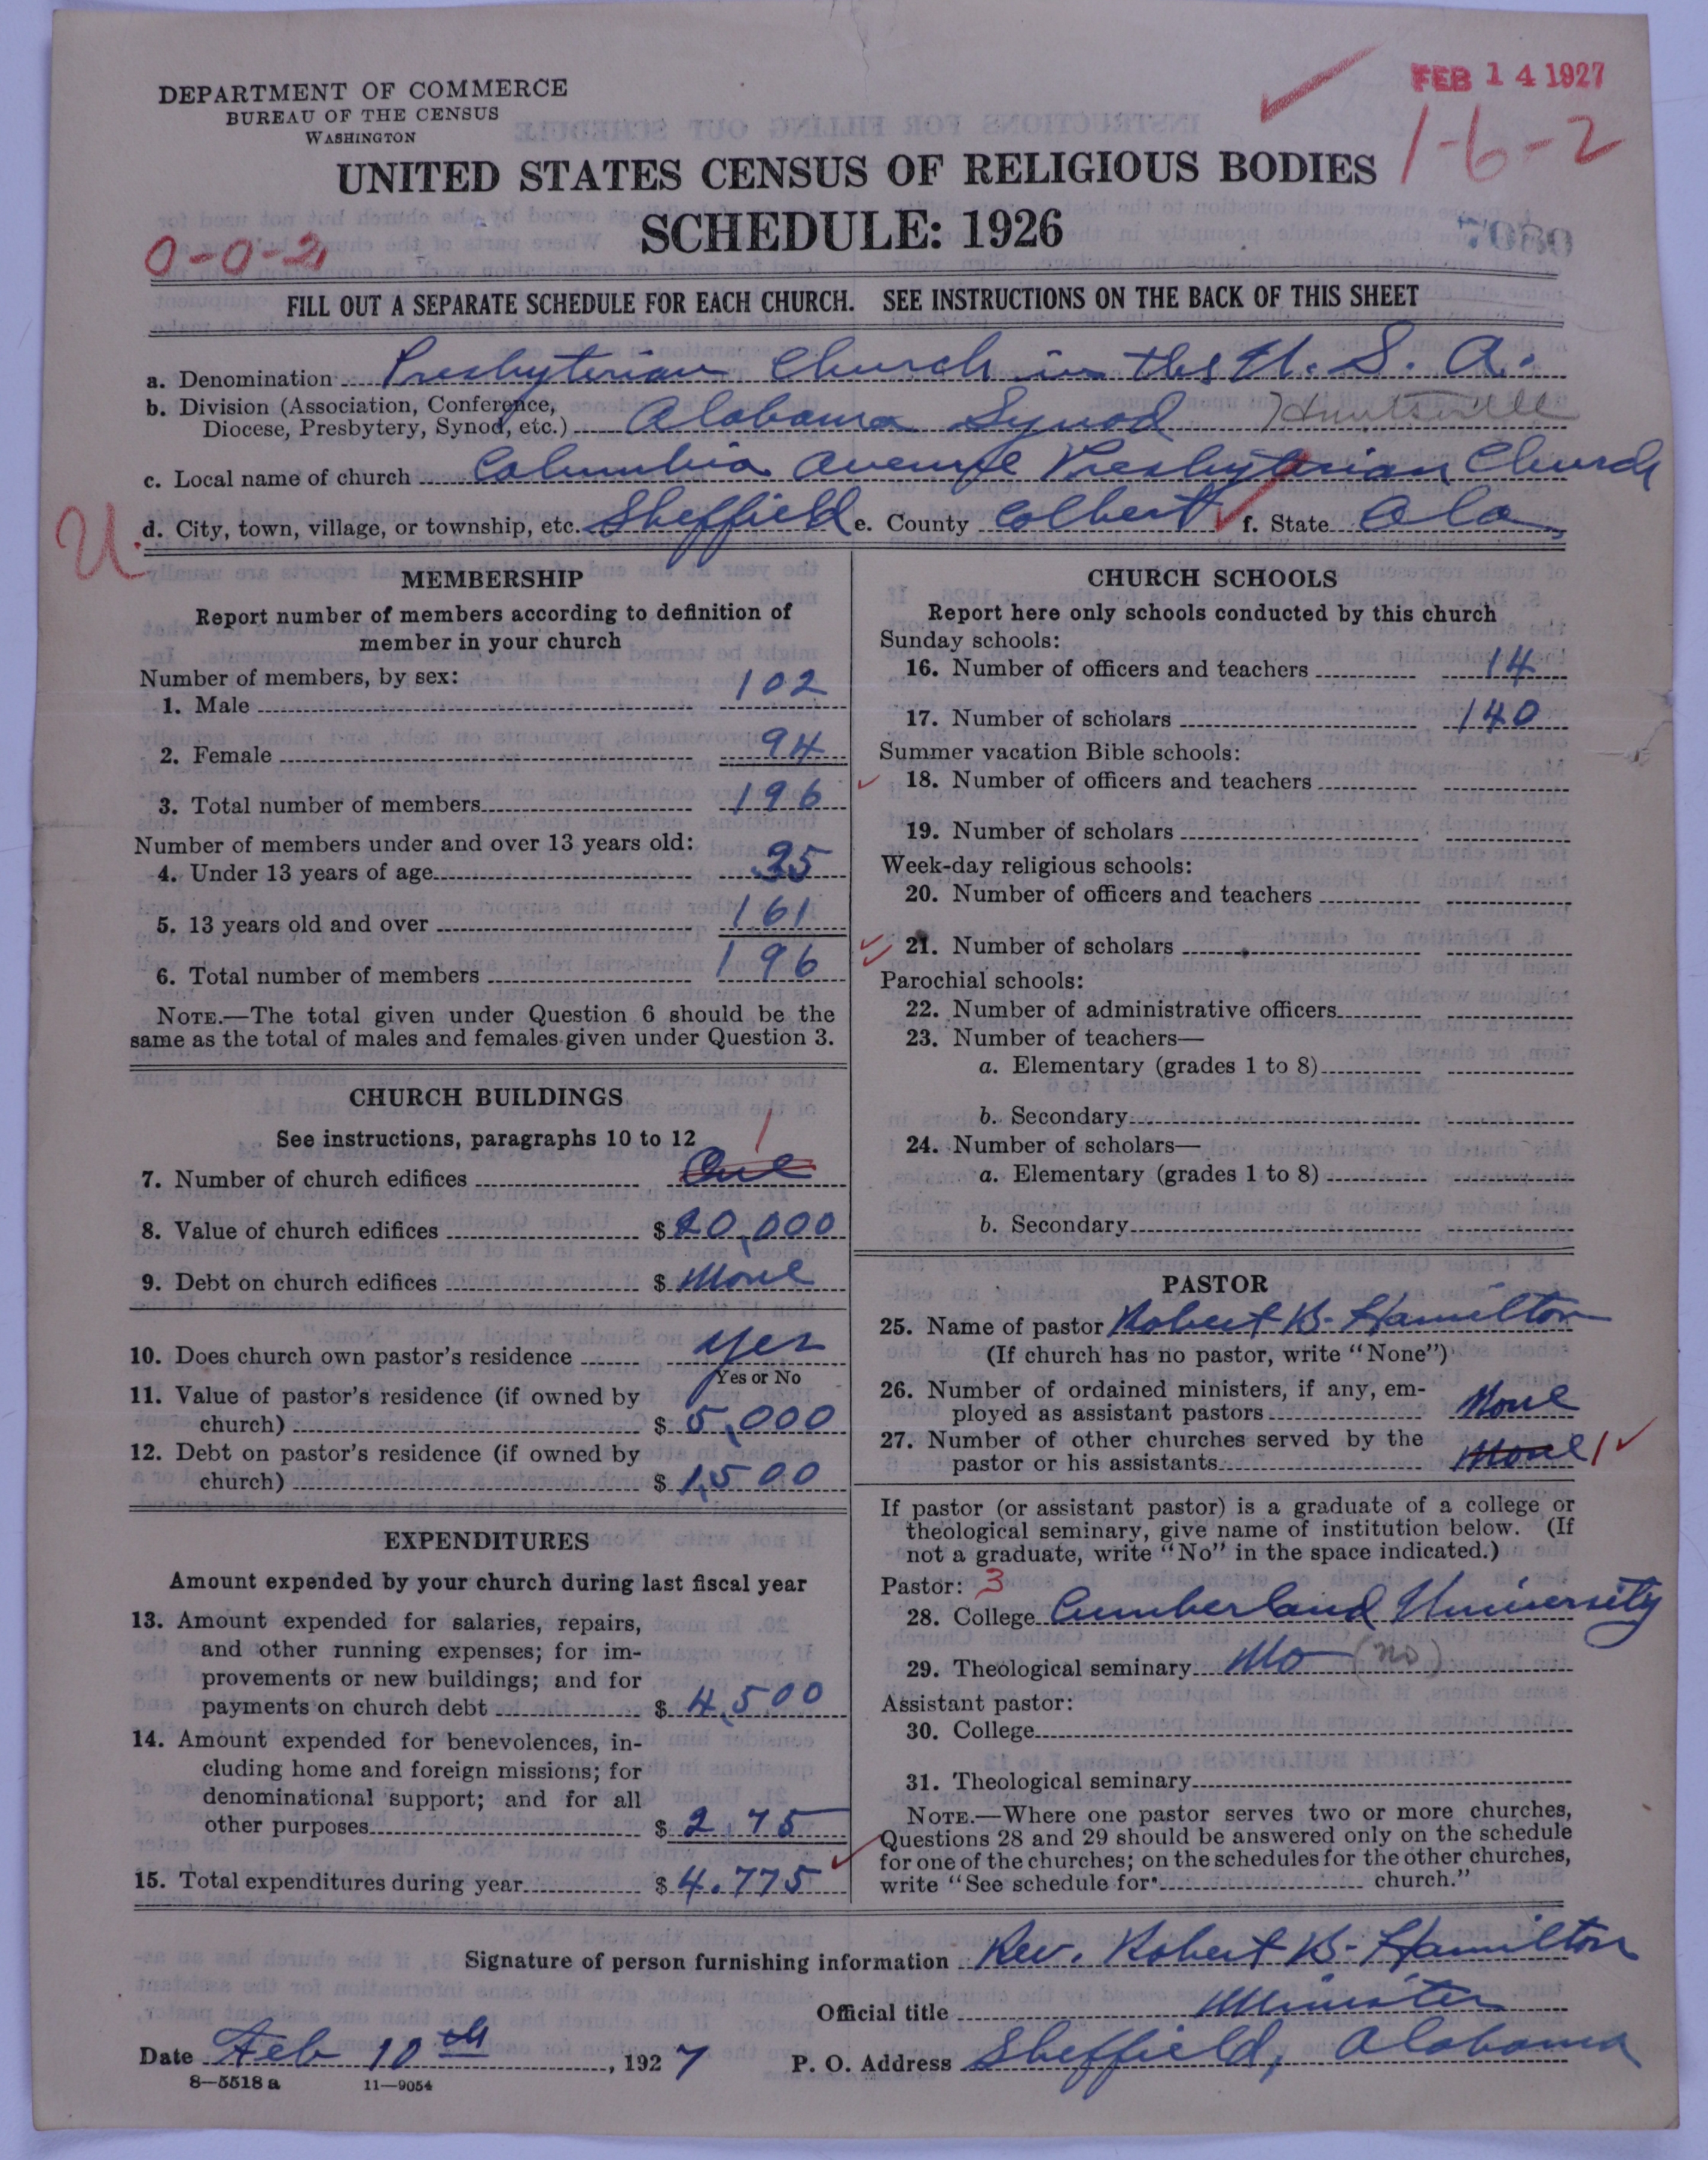 DEPARTMENT OF COMMERCE
BUREAU OF THE CENSUS
WASHINGTON
FEB 14 1927
1-6-2
UNITED STATES CENSUS OF RELIGIOUS BODIES
SCHEDULE: 1926
0-0-2
FILL OUT A SEPARATE SCHEDULE FOR EACH CHURCH. SEE INSTRUCTIONS ON THE BACK OF THIS SHEET
a. Denomination Presbyterian Church in the U. S. A.
b. Division (Association, Conference,
Diocese, Presbytery, Synod, etc.) Alabama Synod Huntsville
c. Local name of church Columbia Avenue Presbyterian Church
U
d. City, town, village, or township, etc. Sheffield e. County Colbert f. State Ala
MEMBERSHIP
Report number of members according to definition of
member in your church
Number of members, by sex:
1. Male 102
2. Female 94
3. Total number of members 196
Number of members under and over 13 years old:
4. Under 13 years of age 35
5. 13 years old and over 161
6. Total number of members 196
NOTE.—The total given under Question 6 should be the
same as the total of males and females given under Question 3.
CHURCH BUILDINGS
See instructions, paragraphs 10 to 12
1
7. Number of church edifices One
8. Value of church edifices $ 20,000
9. Debt on church edifices $ None
10. Does church own pastor's residence Yes
Yes or No
11. Value of pastor's residence (if owned by
church) $ 5,000
12. Debt on pastor's residence (if owned by
church) $ 1,500
EXPENDITURES
Amount expended by your church during last fiscal year
13. Amount expended for salaries, repairs,
and other running expenses; for im-
provements or new buildings; and for
payments on church debt $ 4,500
14. Amount expended for benevolences, in-
cluding home and foreign missions; for
denominational support; and for all
other purposes $ 275
15. Total expenditures during year $ 4.775
CHURCH SCHOOLS
Report here only schools conducted by this church
Sunday schools:
16. Number of officers and teachers 14
17. Number of scholars 140
Summer vacation Bible schools:
18. Number of officers and teachers
19. Number of scholars
Week-day religious schools:
20. Number of officers and teachers
21. Number of scholars
Parochial schools:
22. Number of administrative officers
23. Number of teachers—
a. Elementary (grades 1 to 8)
b. Secondary
24. Number of scholars—
a. Elementary (grades 1 to 8)
b. Secondary
PASTOR
25. Name of pastor Robert B. Hamilton
(If church has no pastor, write "None")
26. Number of ordained ministers, if any, em-
ployed as assistant pastors None
27. Number of other churches served by the
pastor or his assistants None 1
If pastor (or assistant pastor) is a graduate of a college or
theological seminary, give name of institution below. (If
not a graduate, write "No" in the space indicated.)
Pastor: 3
28. College Cumberland University
29. Theological seminary No (no)
Assistant pastor:
30. College
31. Theological seminary
NOTE.—Where one pastor serves two or more churches,
Questions 28 and 29 should be answered only on the schedule
for one of the churches; on the schedules for the other churches,
write "See schedule for church."
Signature of person furnishing information Rev. Robert B. Hamilton
Official title Minister
Date Feb 10th, 1927 P. O. Address Sheffield, Alabama
8—5518 a 11—9054